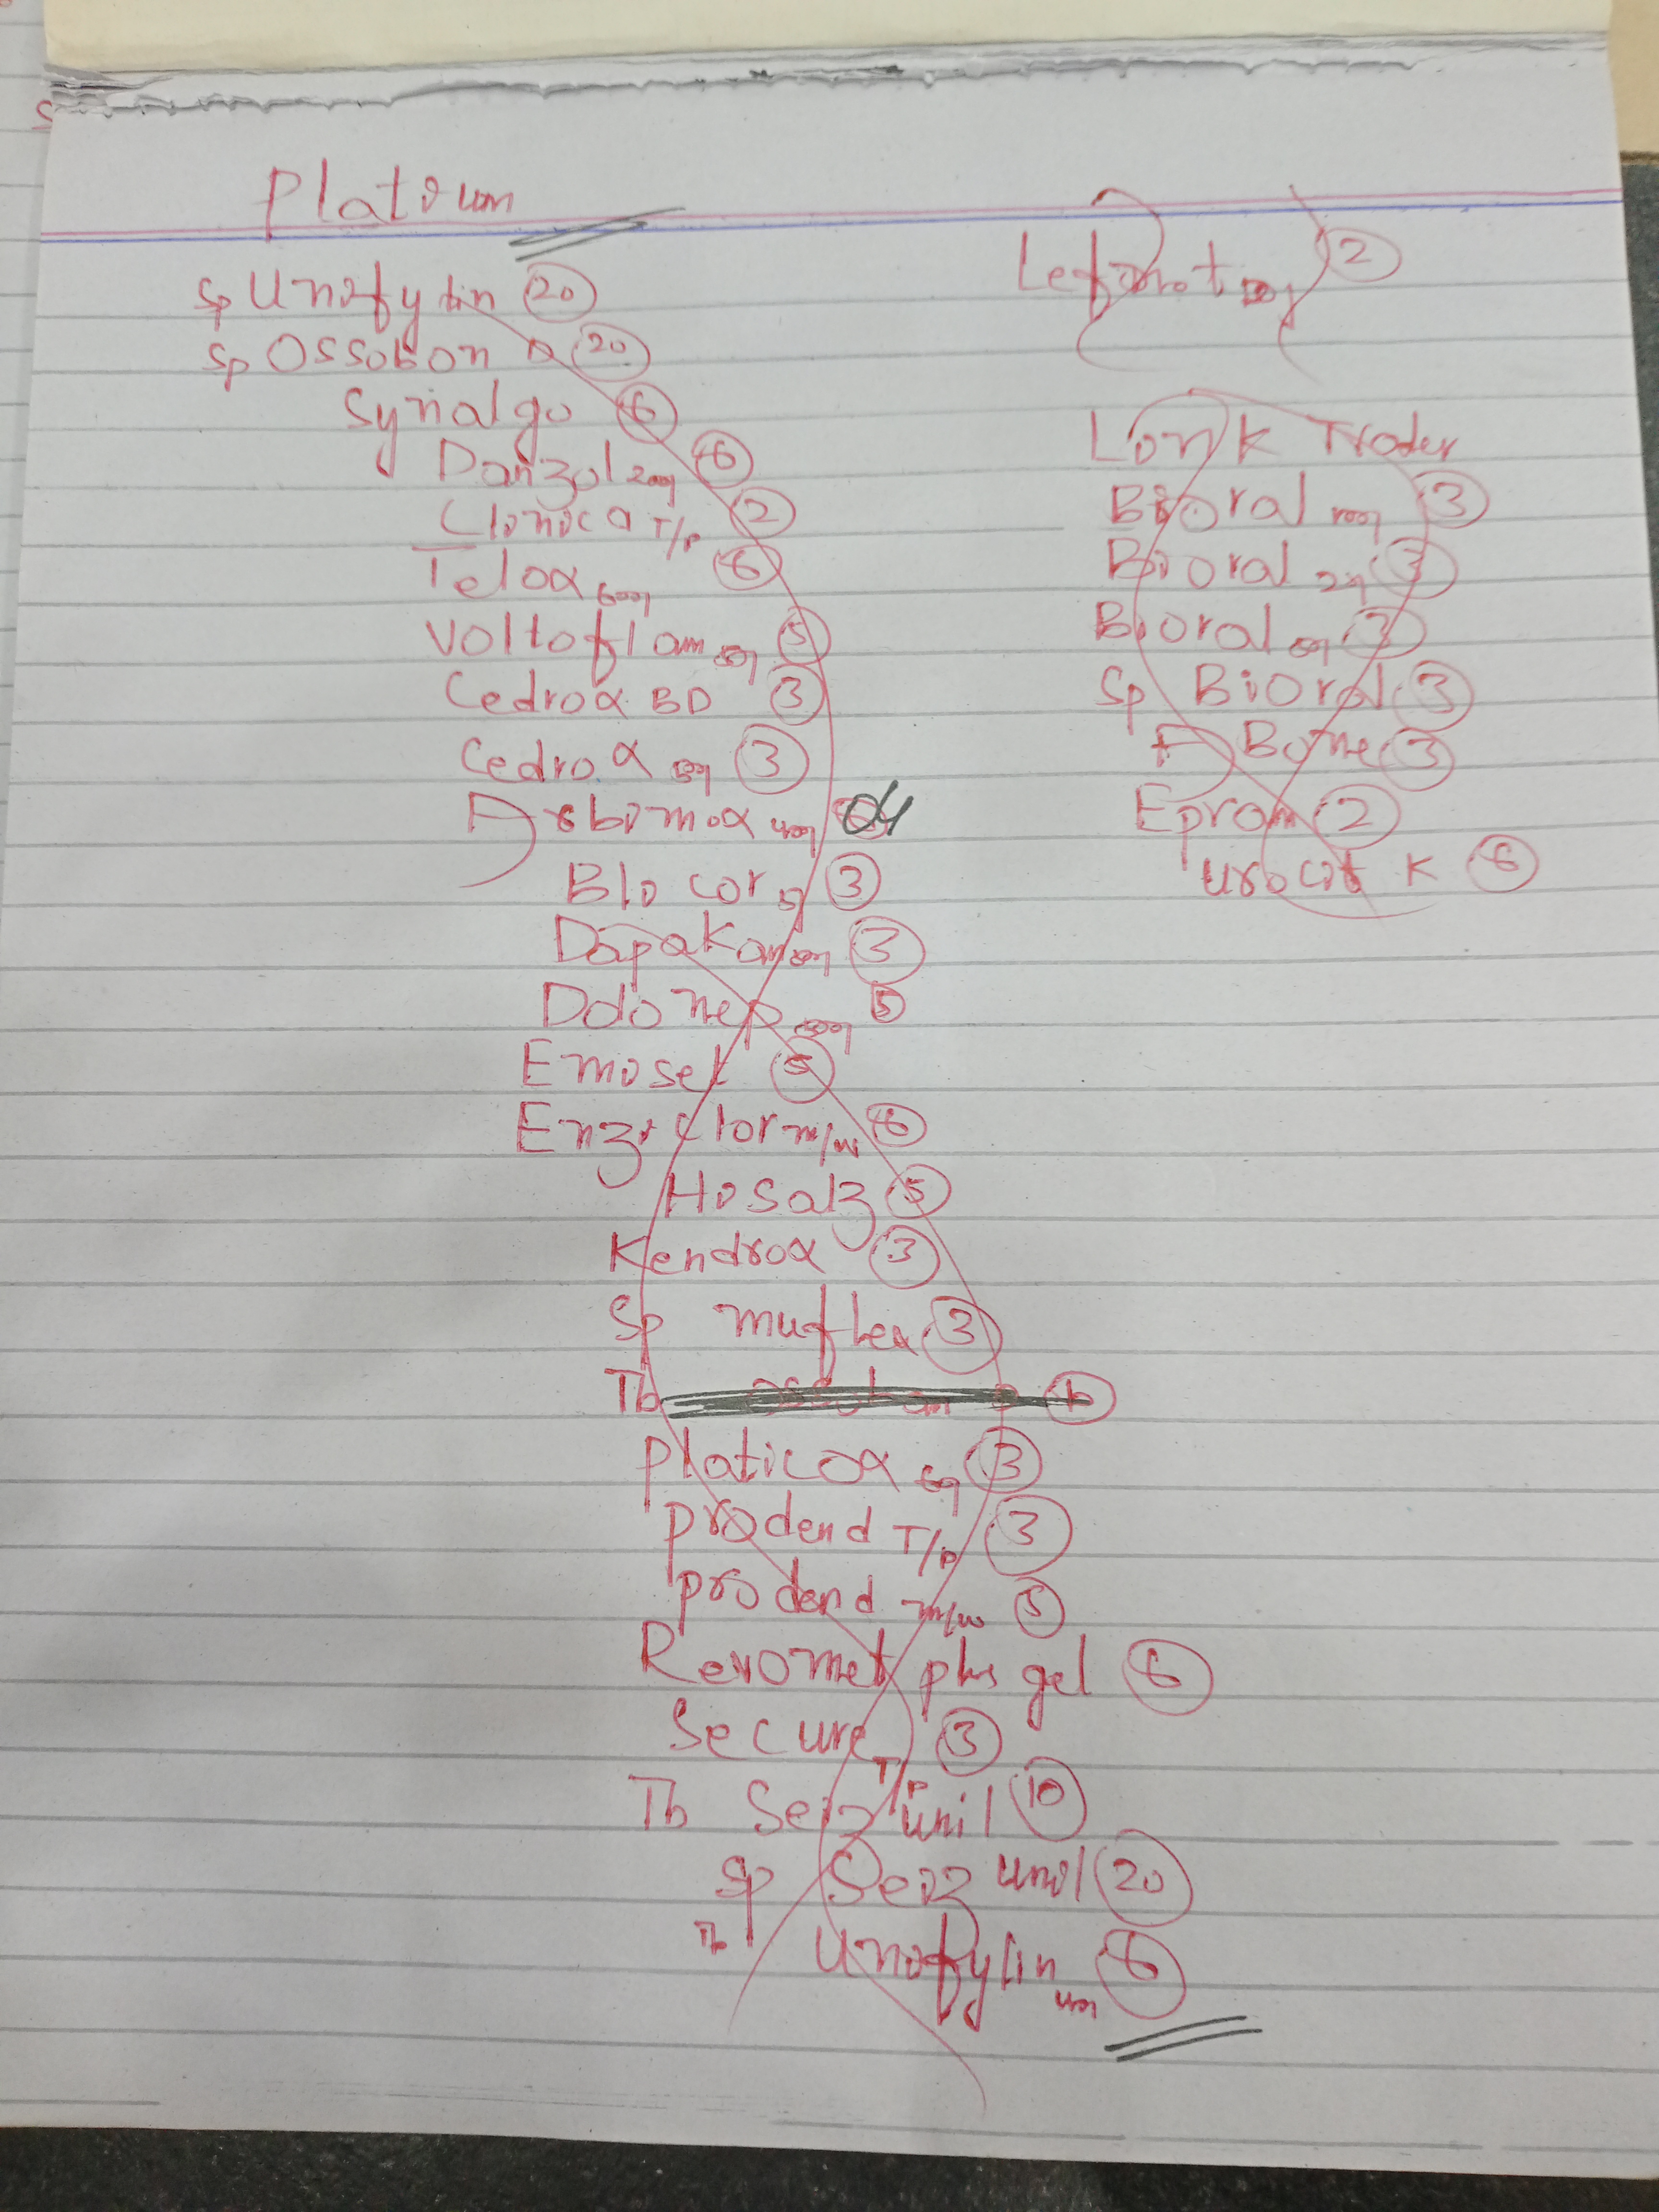 Platinum
Sp Unifylin 20
Sp Ossobon D 20
Synalgo 6
Danzol 200mg 6
Clinica T/P 2
Telox 600mg 6
Voltoflam 50mg 5
Cedrox BD 3
Cedrox 3
Arbimox 04
Blocor 5 3
Dapakan 3
Ddonep 5
Emoset 5
Enziclor m/w 6
Hisalz 5
Kendrox 3
Sp muflex 3
Tb
Platicox 3
prodend T/P 3
prodend m/w 5
Revomet plus gel 6
Secure T/P 3
Tb Seizunil 10
Sp Seizunil 20
Tb Unifylin 6
2
Link Trader
Bioral 3
Bioral 3
Bioral 3
Sp Bioral 3
A Bone 3
Eprom 2
Urocit K 6